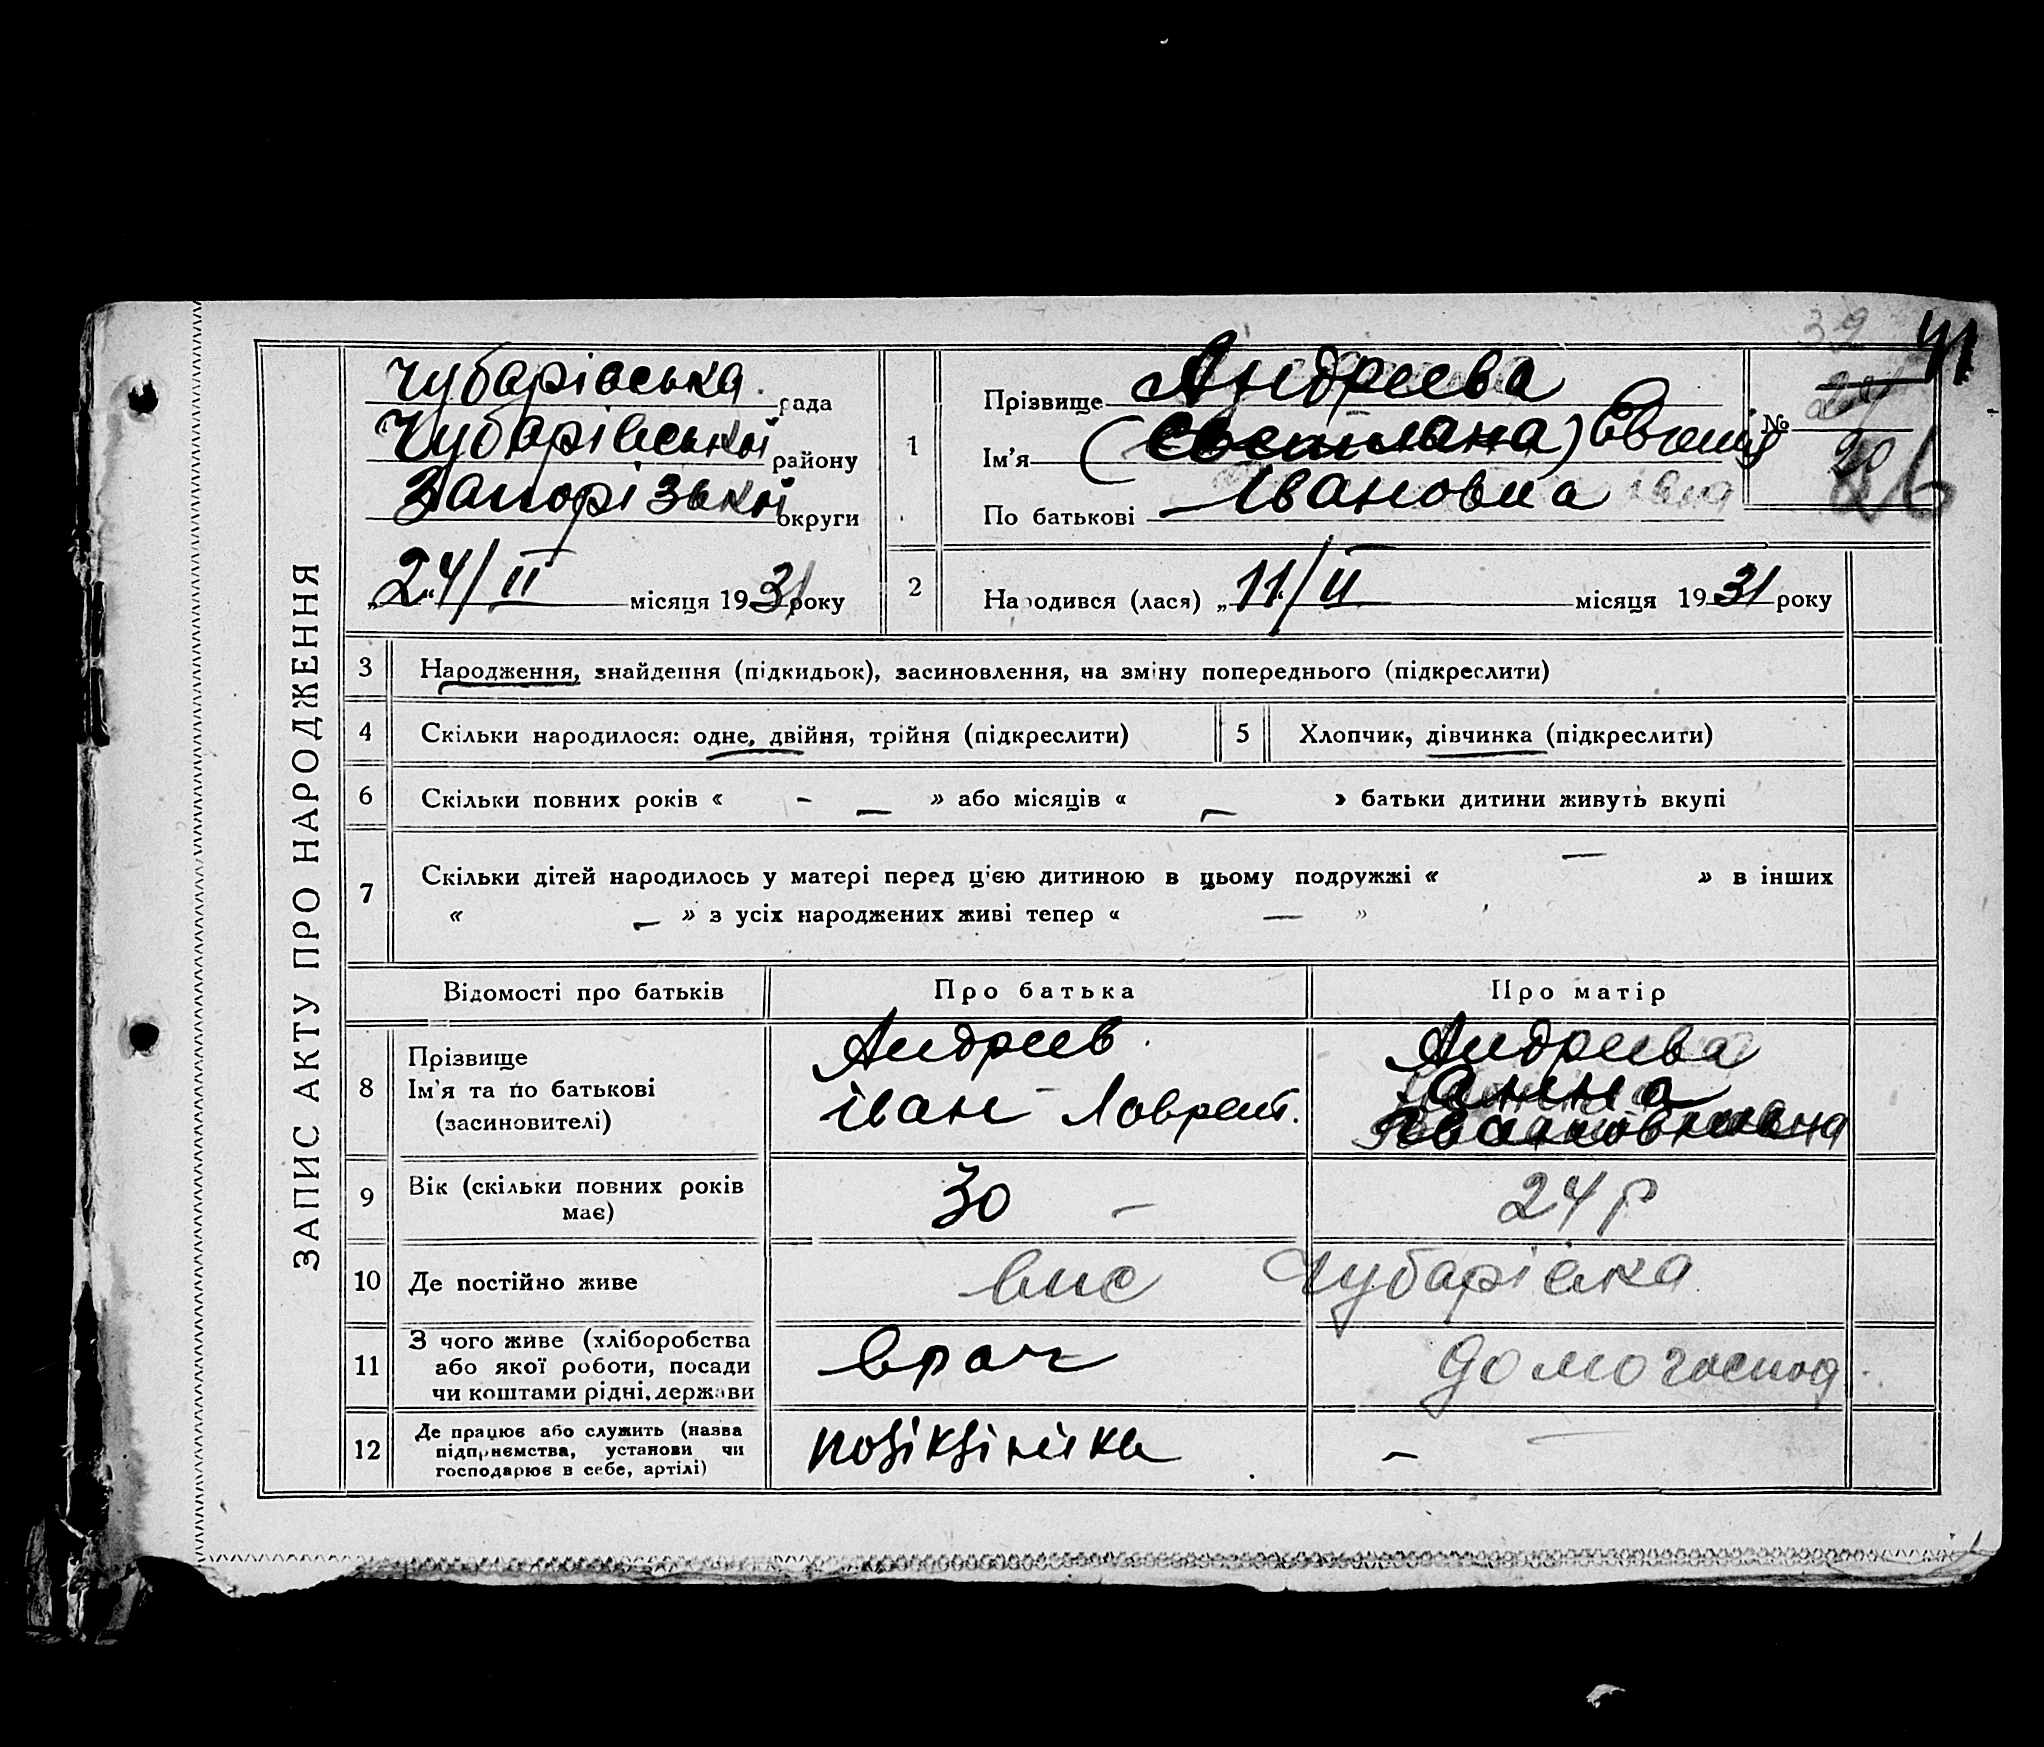 ЗАПИС АКТУ ПРО НАРОДЖЕННЯ
39 41
Чубарівська рада
Чубарівської району
Запорізької округи
„24/II місяця 1931 року
1 Прізвище Андреева
Ім'я (Євєтилана) Євгенія
По батькові Івановна
№ 24
20
26
2 Народився (лася) „11/II місяця 1931 року
3 Народження, знайдення (підкидьок), засиновлення, на зміну попереднього (підкреслити)
4 Скільки народилося: одне, двійня, трійня (підкреслити) 5 Хлопчик, дівчинка (підкреслити)
6 Скільки повних років « – » або місяців « – » батьки дитини живуть вкупі
7 Скільки дітей народилось у матері перед ц'єю дитиною в цьому подружжі « — » в інших
« – » з усіх народжених живі тепер « — »
Відомості про батьків Про батька Про матір
8 Прізвище Андреев Андреева
Ім'я та по батькові Іван Лаврент. Анна
(засиновителі)
9 Вік (скільки повних років має) 30 – 24 р
10 Де постійно живе Чубарівка
11 З чого живе (хліборобства або якої роботи, посади чи коштами рідні, держави врач домогоспод.
12 Де працює або служить (назва підприємства, установи чи господарює в себе, артілі) поліклініка –